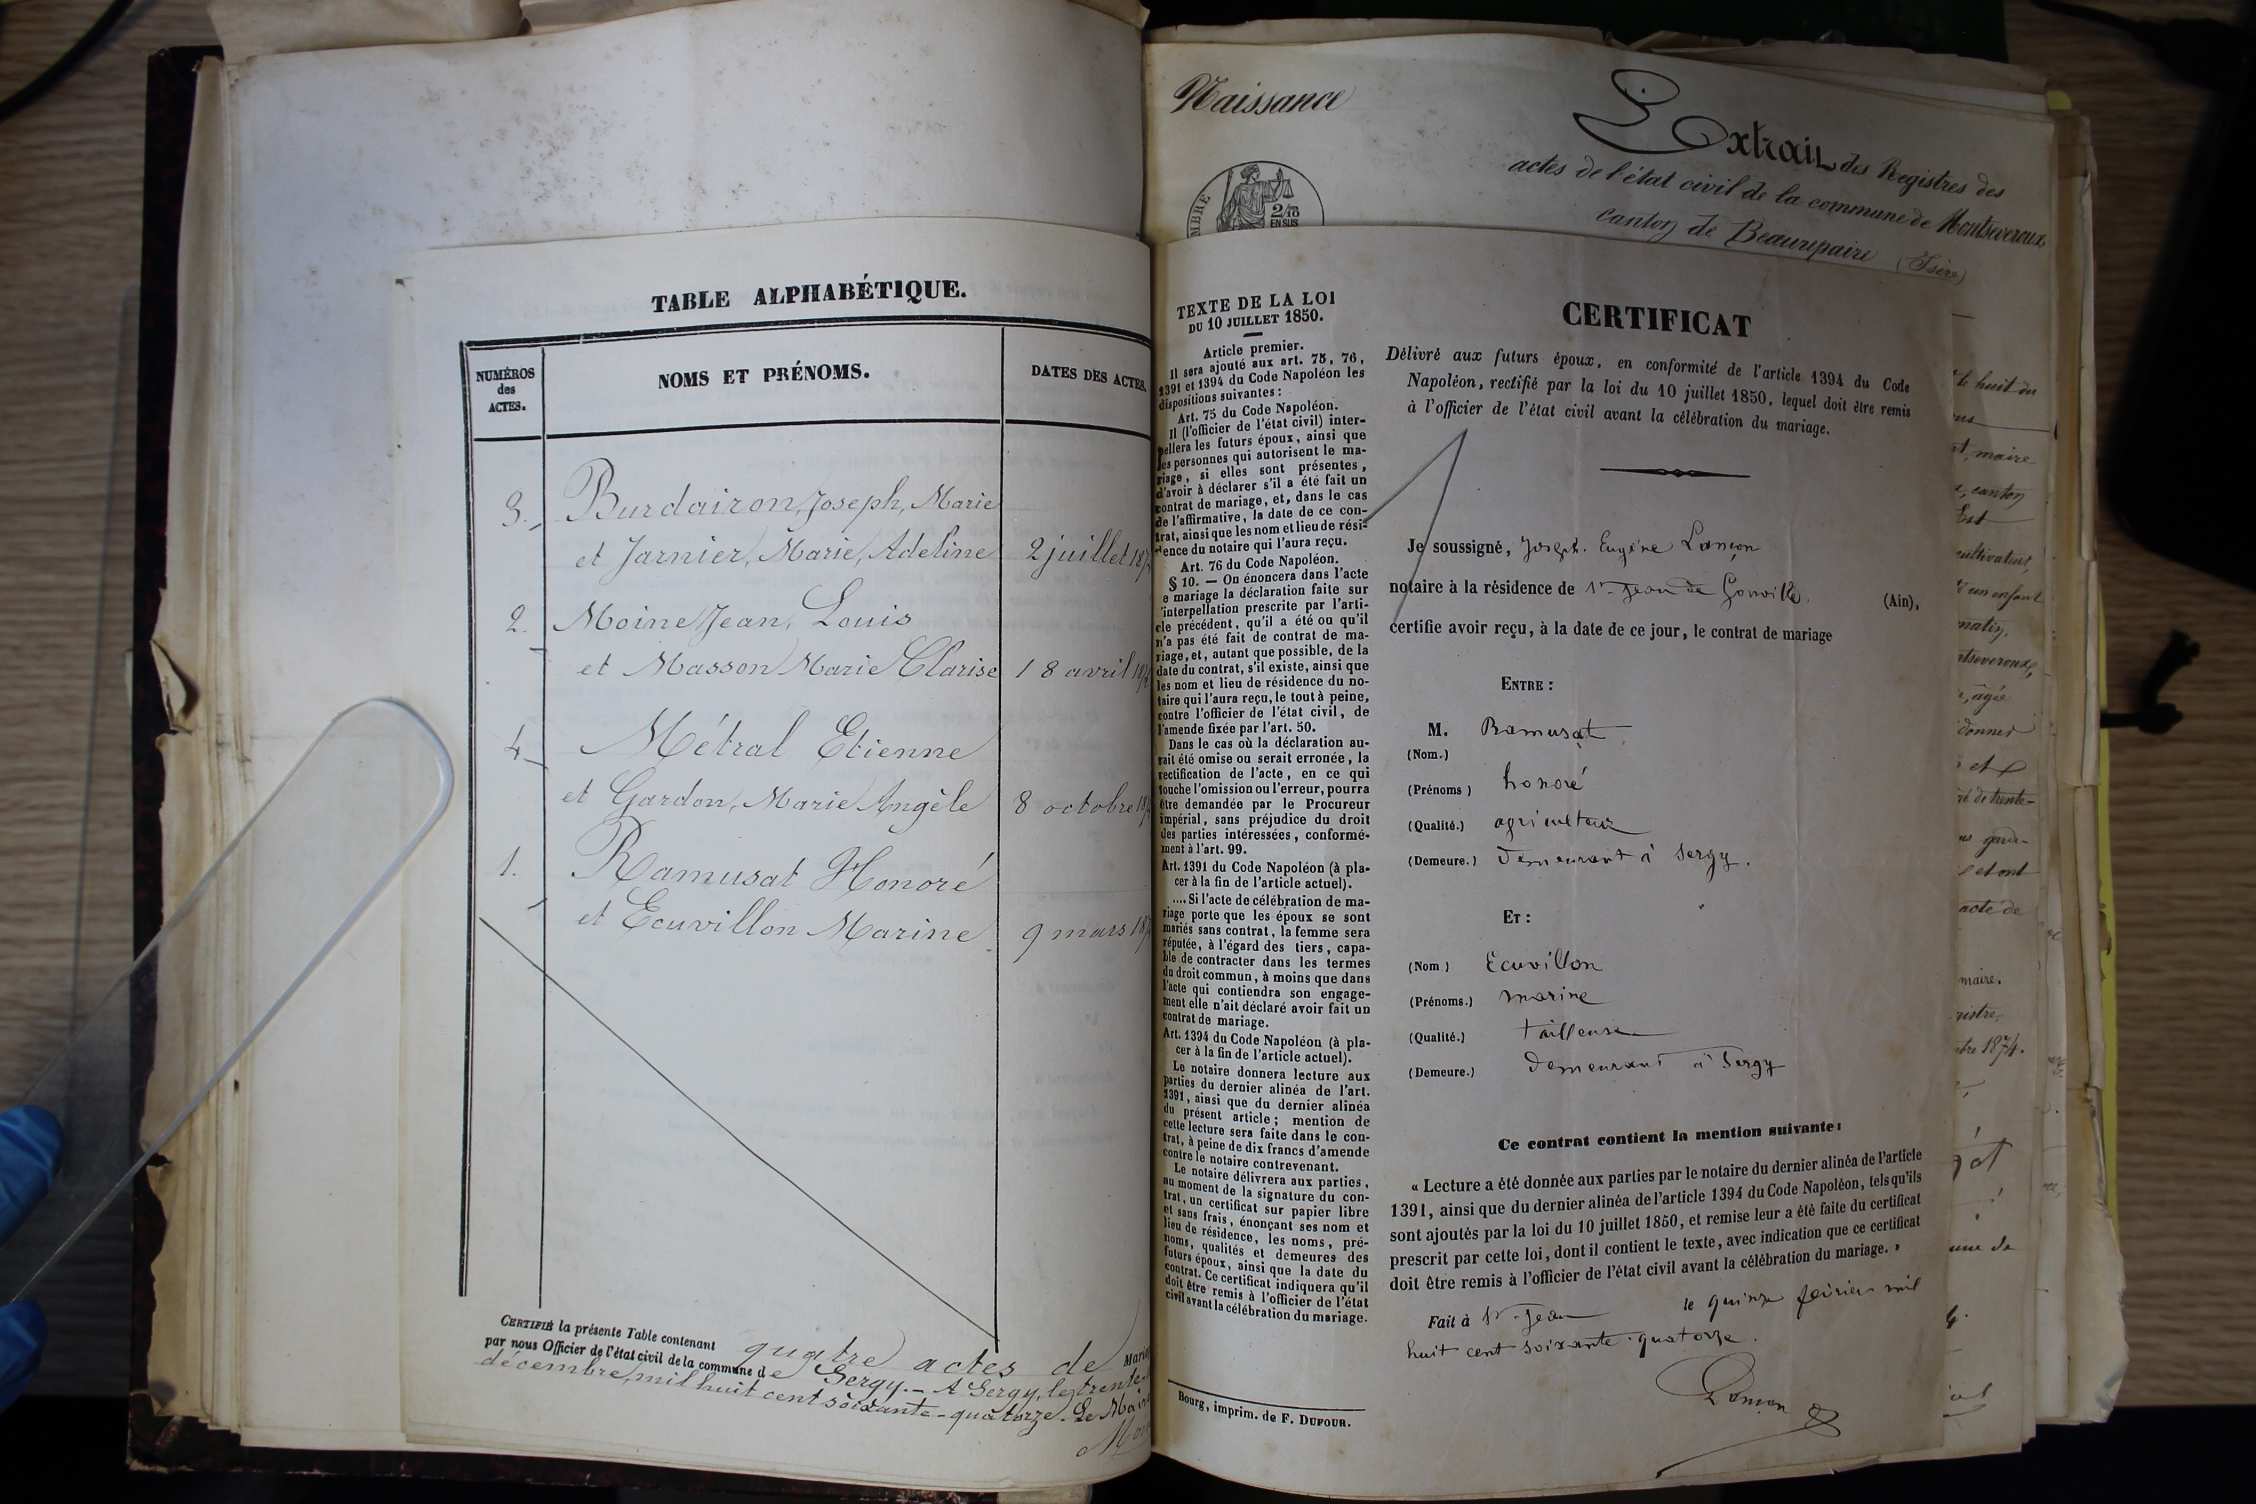 TABLE ALPHABÉTIQUE.
NUMÉROS
des
ACTES.
NOMS ET PRÉNOMS.
DATES DES ACTES.
3. Burdairon, Joseph, Marie
et Jarnier, Marie, Adeline 2 juillet 187
2. Moine Jean, Louis
et Masson Marie Clarise 18 avril 187
4 Métral Etienne
et Gardon, Marie Angèle 8 octobre 187
1. Ramusat Honoré
et Ecuvillon Marine 9 mars 187
CERTIFIÉ la présente Table contenant quatre actes de Maria
par nous Officier de l'état civil de la commune de Sergy. - A Sergy, le trente-
décembre, mil huit cent soixante-quatorze. Le Mair
Naissance
Extrait des Registres des
actes de l'état civil de la commune de Montseveroux
canton de Beaurepaire (Isère)
MBRE
2/10
EN SUS
TEXTE DE LA LOI
DU 10 JUILLET 1850.
Article premier.
Il sera ajouté aux art. 75, 76,
1391 et 1394 du Code Napoléon les
dispositions suivantes :
Art. 75 du Code Napoléon.
Il (l'officier de l'état civil) inter-
pellera les futurs époux, ainsi que
les personnes qui autorisent le ma-
riage, si elles sont présentes,
d'avoir à déclarer s'il a été fait un
contrat de mariage, et, dans le cas
de l'affirmative, la date de ce con-
trat, ainsi que les nom et lieu de rési-
dence du notaire qui l'aura reçu.
Art. 76 du Code Napoléon.
§ 10. — On énoncera dans l'acte
e mariage la déclaration faite sur
l'interpellation prescrite par l'arti-
cle précédent, qu'il a été ou qu'il
n'a pas été fait de contrat de ma-
riage, et, autant que possible, de la
date du contrat, s'il existe, ainsi que
les nom et lieu de résidence du no-
taire qui l'aura reçu, le tout à peine,
contre l'officier de l'état civil, de
l'amende fixée par l'art. 50.
Dans le cas où la déclaration au-
rait été omise ou serait erronée, la
rectification de l'acte, en ce qui
touche l'omission ou l'erreur, pourra
être demandée par le Procureur
impérial, sans préjudice du droit
des parties intéressées, conformé-
ment à l'art. 99.
Art. 1391 du Code Napoléon (à pla-
cer à la fin de l'article actuel).
.... Si l'acte de célébration de ma-
riage porte que les époux se sont
mariés sans contrat, la femme sera
réputée, à l'égard des tiers, capa-
ble de contracter dans les termes
du droit commun, à moins que dans
l'acte qui contiendra son engage-
ment elle n'ait déclaré avoir fait un
contrat de mariage.
Art. 1394 du Code Napoléon (à pla-
cer à la fin de l'article actuel).
Le notaire donnera lecture aux
parties du dernier alinéa de l'art.
1391, ainsi que du dernier alinéa
du présent article ; mention de
cette lecture sera faite dans le con-
trat, à peine de dix francs d'amende
contre le notaire contrevenant.
Le notaire délivrera aux parties,
au moment de la signature du con-
trat, un certificat sur papier libre
et sans frais, énonçant ses nom et
lieu de résidence, les noms, pré-
noms, qualités et demeures des
futurs époux, ainsi que la date du
contrat. Ce certificat indiquera qu'il
doit être remis à l'officier de l'état
civil avant la célébration du mariage.
Bourg, imprim. de F. DUFOUR.
CERTIFICAT
Délivré aux futurs époux, en conformité de l'article 1394 du Code
Napoléon, rectifié par la loi du 10 juillet 1850, lequel doit être remis
à l'officier de l'état civil avant la célébration du mariage.
Je soussigné, Joseph Eugène Lançon
notaire à la résidence de St Jean de Gonville. (Ain),
certifie avoir reçu, à la date de ce jour, le contrat de mariage
ENTRE :
M. Ramusat
(Nom.)
(Prénoms) honoré
(Qualité.) agriculteur
(Demeure.) demeurant à Sergy.
ET :
(Nom) Ecuvillon
(Prénoms.) marine
(Qualité.) tailleuse
(Demeure.) demeurant à Sergy
Ce contrat contient la mention suivante :
« Lecture a été donnée aux parties par le notaire du dernier alinéa de l'article
1391, ainsi que du dernier alinéa de l'article 1394 du Code Napoléon, tels qu'ils
sont ajoutés par la loi du 10 juillet 1850, et remise leur a été faite du certificat
prescrit par cette loi, dont il contient le texte, avec indication que ce certificat
doit être remis à l'officier de l'état civil avant la célébration du mariage. »
Fait à St-Jean le quinze février mil
huit cent soixante-quatorze.
Lançon
le huit du
maire
canton
Est
cultivateur,
un enfant
matin,
âgée
donner
et
de trente-
et ont
acte de
maire.
1874.